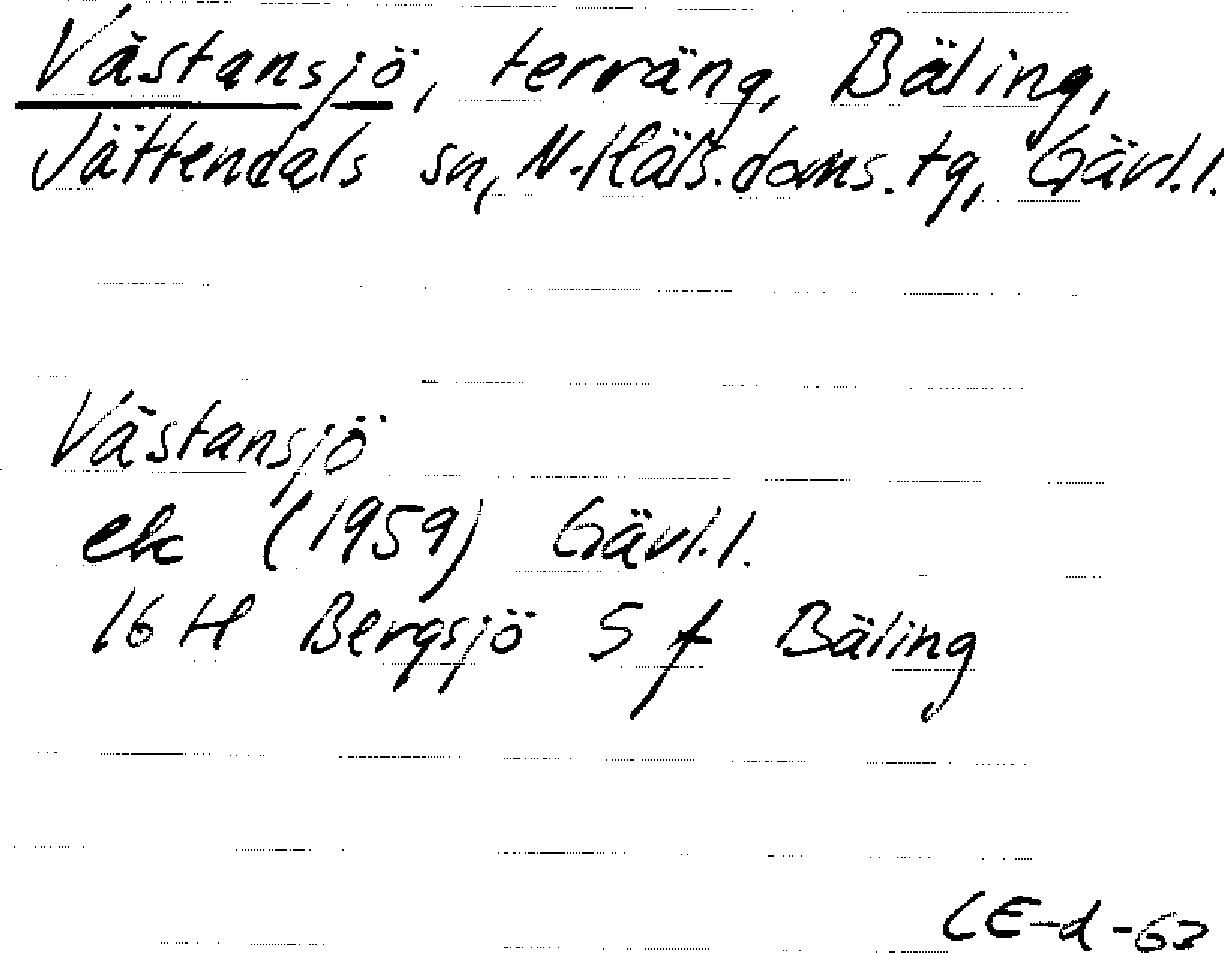 Västansjö, terräng, Bäling,
Jättendals sn, N. Häls. doms. tg, Gävl.l.
Västansjö
ek (1959) Gävl.l.
16 H Bergsjö S f Bäling
CE-d-63